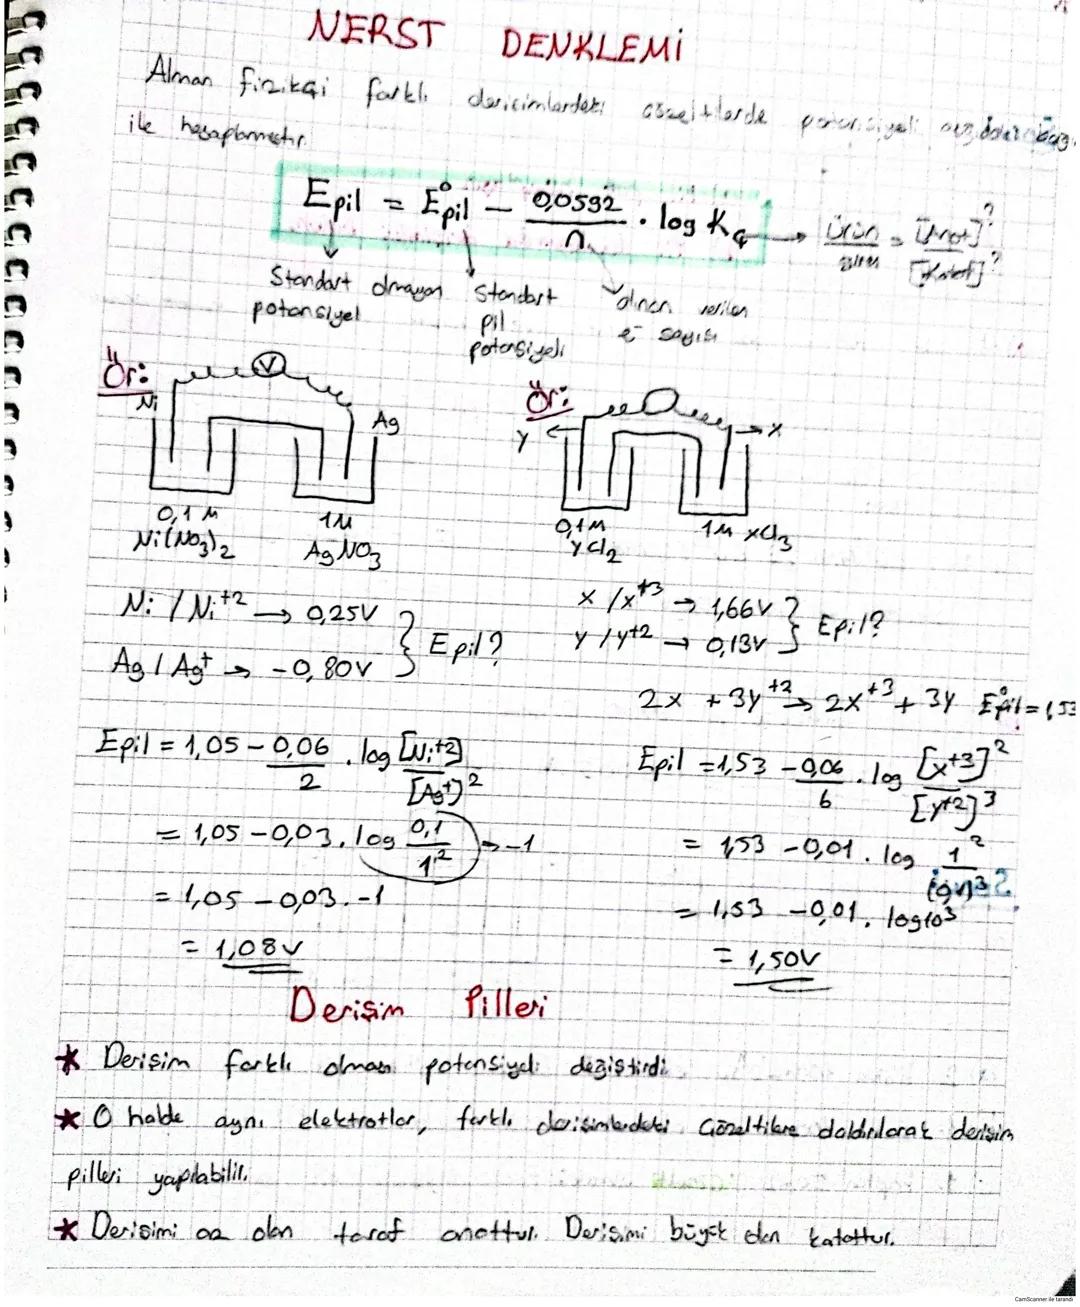 NERST DENKLEMİ
Alman fizikçi farklı derişimlerdeki çözeltilerde potansiyeli
ile hesaplamıştır.
Epil = E°pil - 0,0592/n . log Kç → Ürün/giren = [Anot]?/[Katot]?
Standart olmayan potansiyel
Standart pil potansiyeli
alınan verilen e- sayısı
Ör:
Ni
V
Ag
0,1 M
Ni(NO3)2
1M
AgNO3
Ör:
Y
X
0,1M
YCl2
1M XCl3
Ni / Ni+2 → 0,25V
Ag / Ag+ → -0,80V } Epil?
X / X+3 → 1,66V
Y / Y+2 → 0,13V } Epil?
2X + 3Y+2 → 2X+3 + 3Y E°pil = 1,53
Epil = 1,05 - 0,06/2 . log [Ni+2]/[Ag+]2
= 1,05 - 0,03 . log 0,1/1^2 → -1
= 1,05 - 0,03 . -1
= 1,08V
Epil = 1,53 - 0,06/6 . log [X+3]2/[Y+2]3
= 1,53 - 0,01 . log 1^2/(0,1)3
= 1,53 - 0,01 . log10^3
= 1,50V
Derişim Pilleri
* Derişim farklı olması potansiyeli değiştirdi.
* O halde aynı elektrotlar, farklı derişimlerdeki çözeltilere daldırılarak derişim
pilleri yapılabilir.
* Derişimi az olan taraf anottur. Derişimi büyük olan katottur.
CamScanner ile tarandı